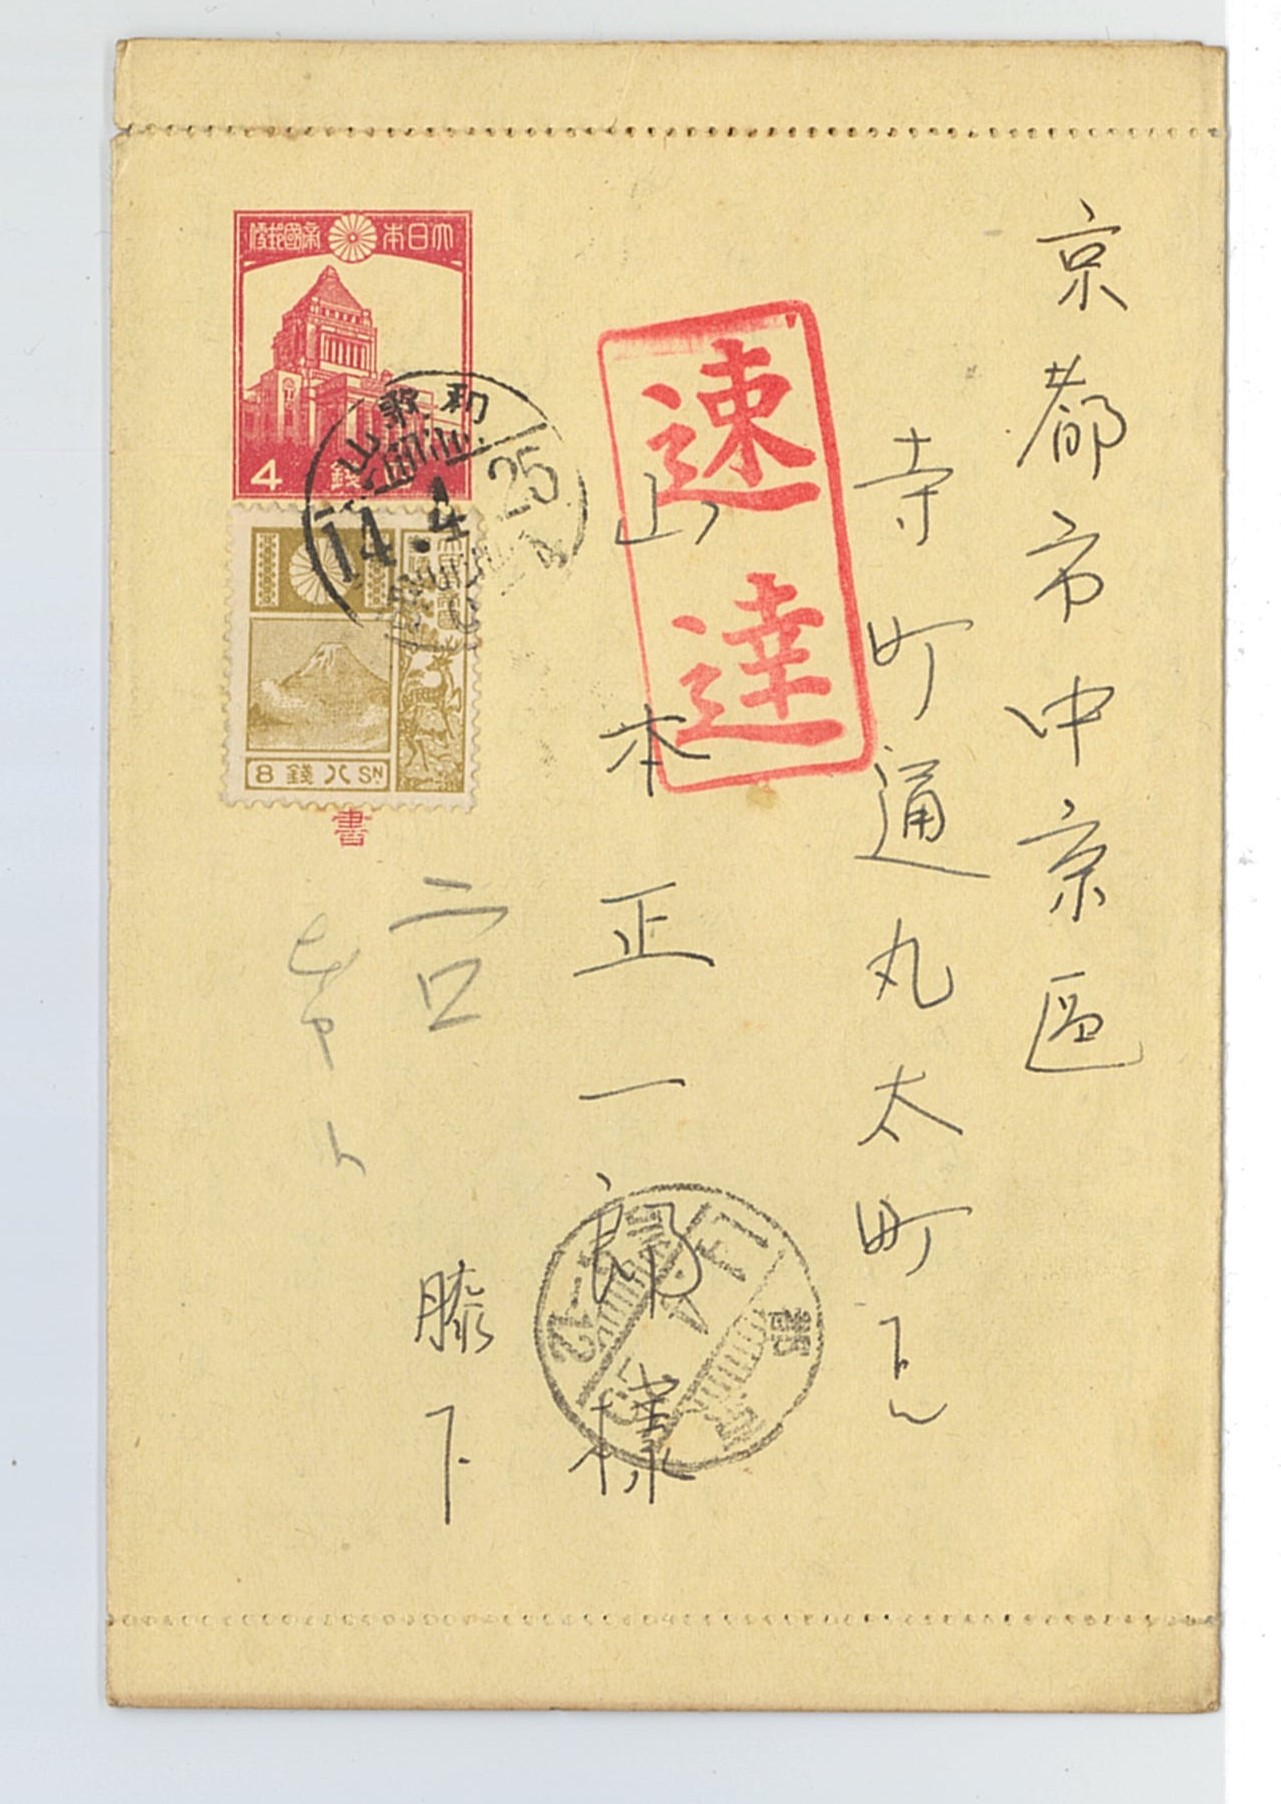 京都市中京區
寺町通丸太町下ル
速達
山本正一郎様
膝下
大日本帝國郵便
4 錢四
和歌山
14.4.25
8 錢八 SN
書
京都